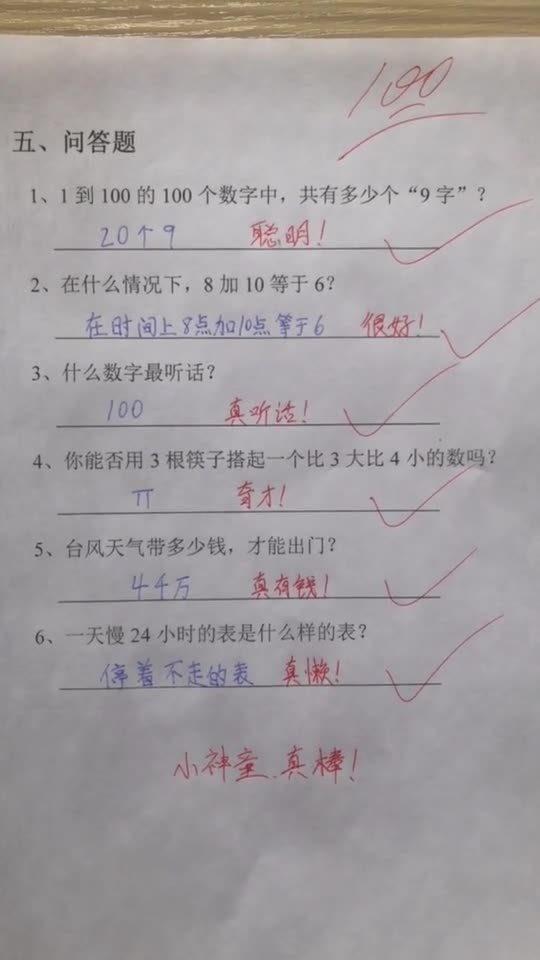 100
五、问答题
1、1 到 100 的 100 个数字中，共有多少个“9 字”？
20个9 聪明！
2、在什么情况下，8 加 10 等于 6？
在时间上8点加10点等于6 很好！
3、什么数字最听话？
100 真听话！
4、你能否用 3 根筷子搭起一个比 3 大比 4 小的数吗？
π 奇才！
5、台风天气带多少钱，才能出门？
4千万 真有钱！
6、一天慢 24 小时的表是什么样的表？
停着不走的表 真懒！
小神童、真棒！